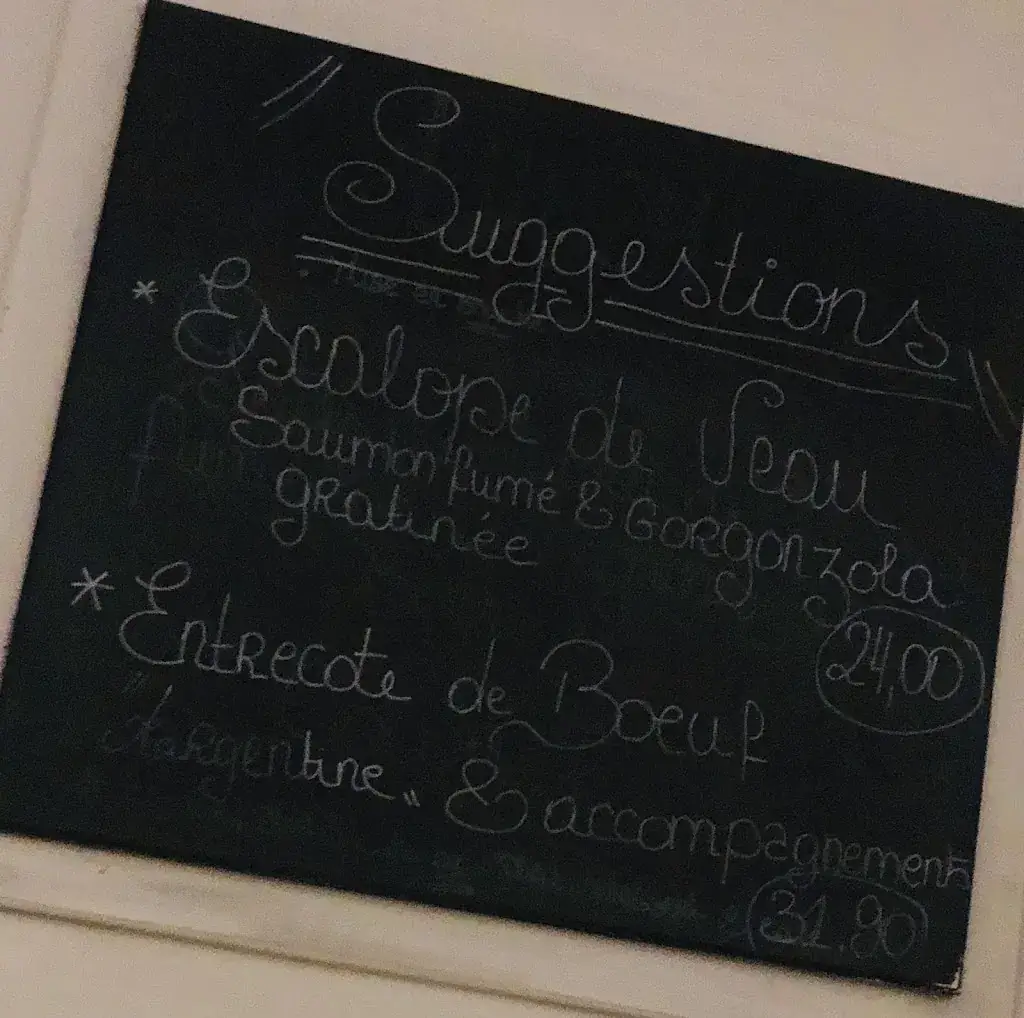 Suggestions
* Escalope de Veau
Saumon fumé & Gorgonzola
gratinée
24,00
* Entrecote de Boeuf
"Argentine" & accompagnements
31.90